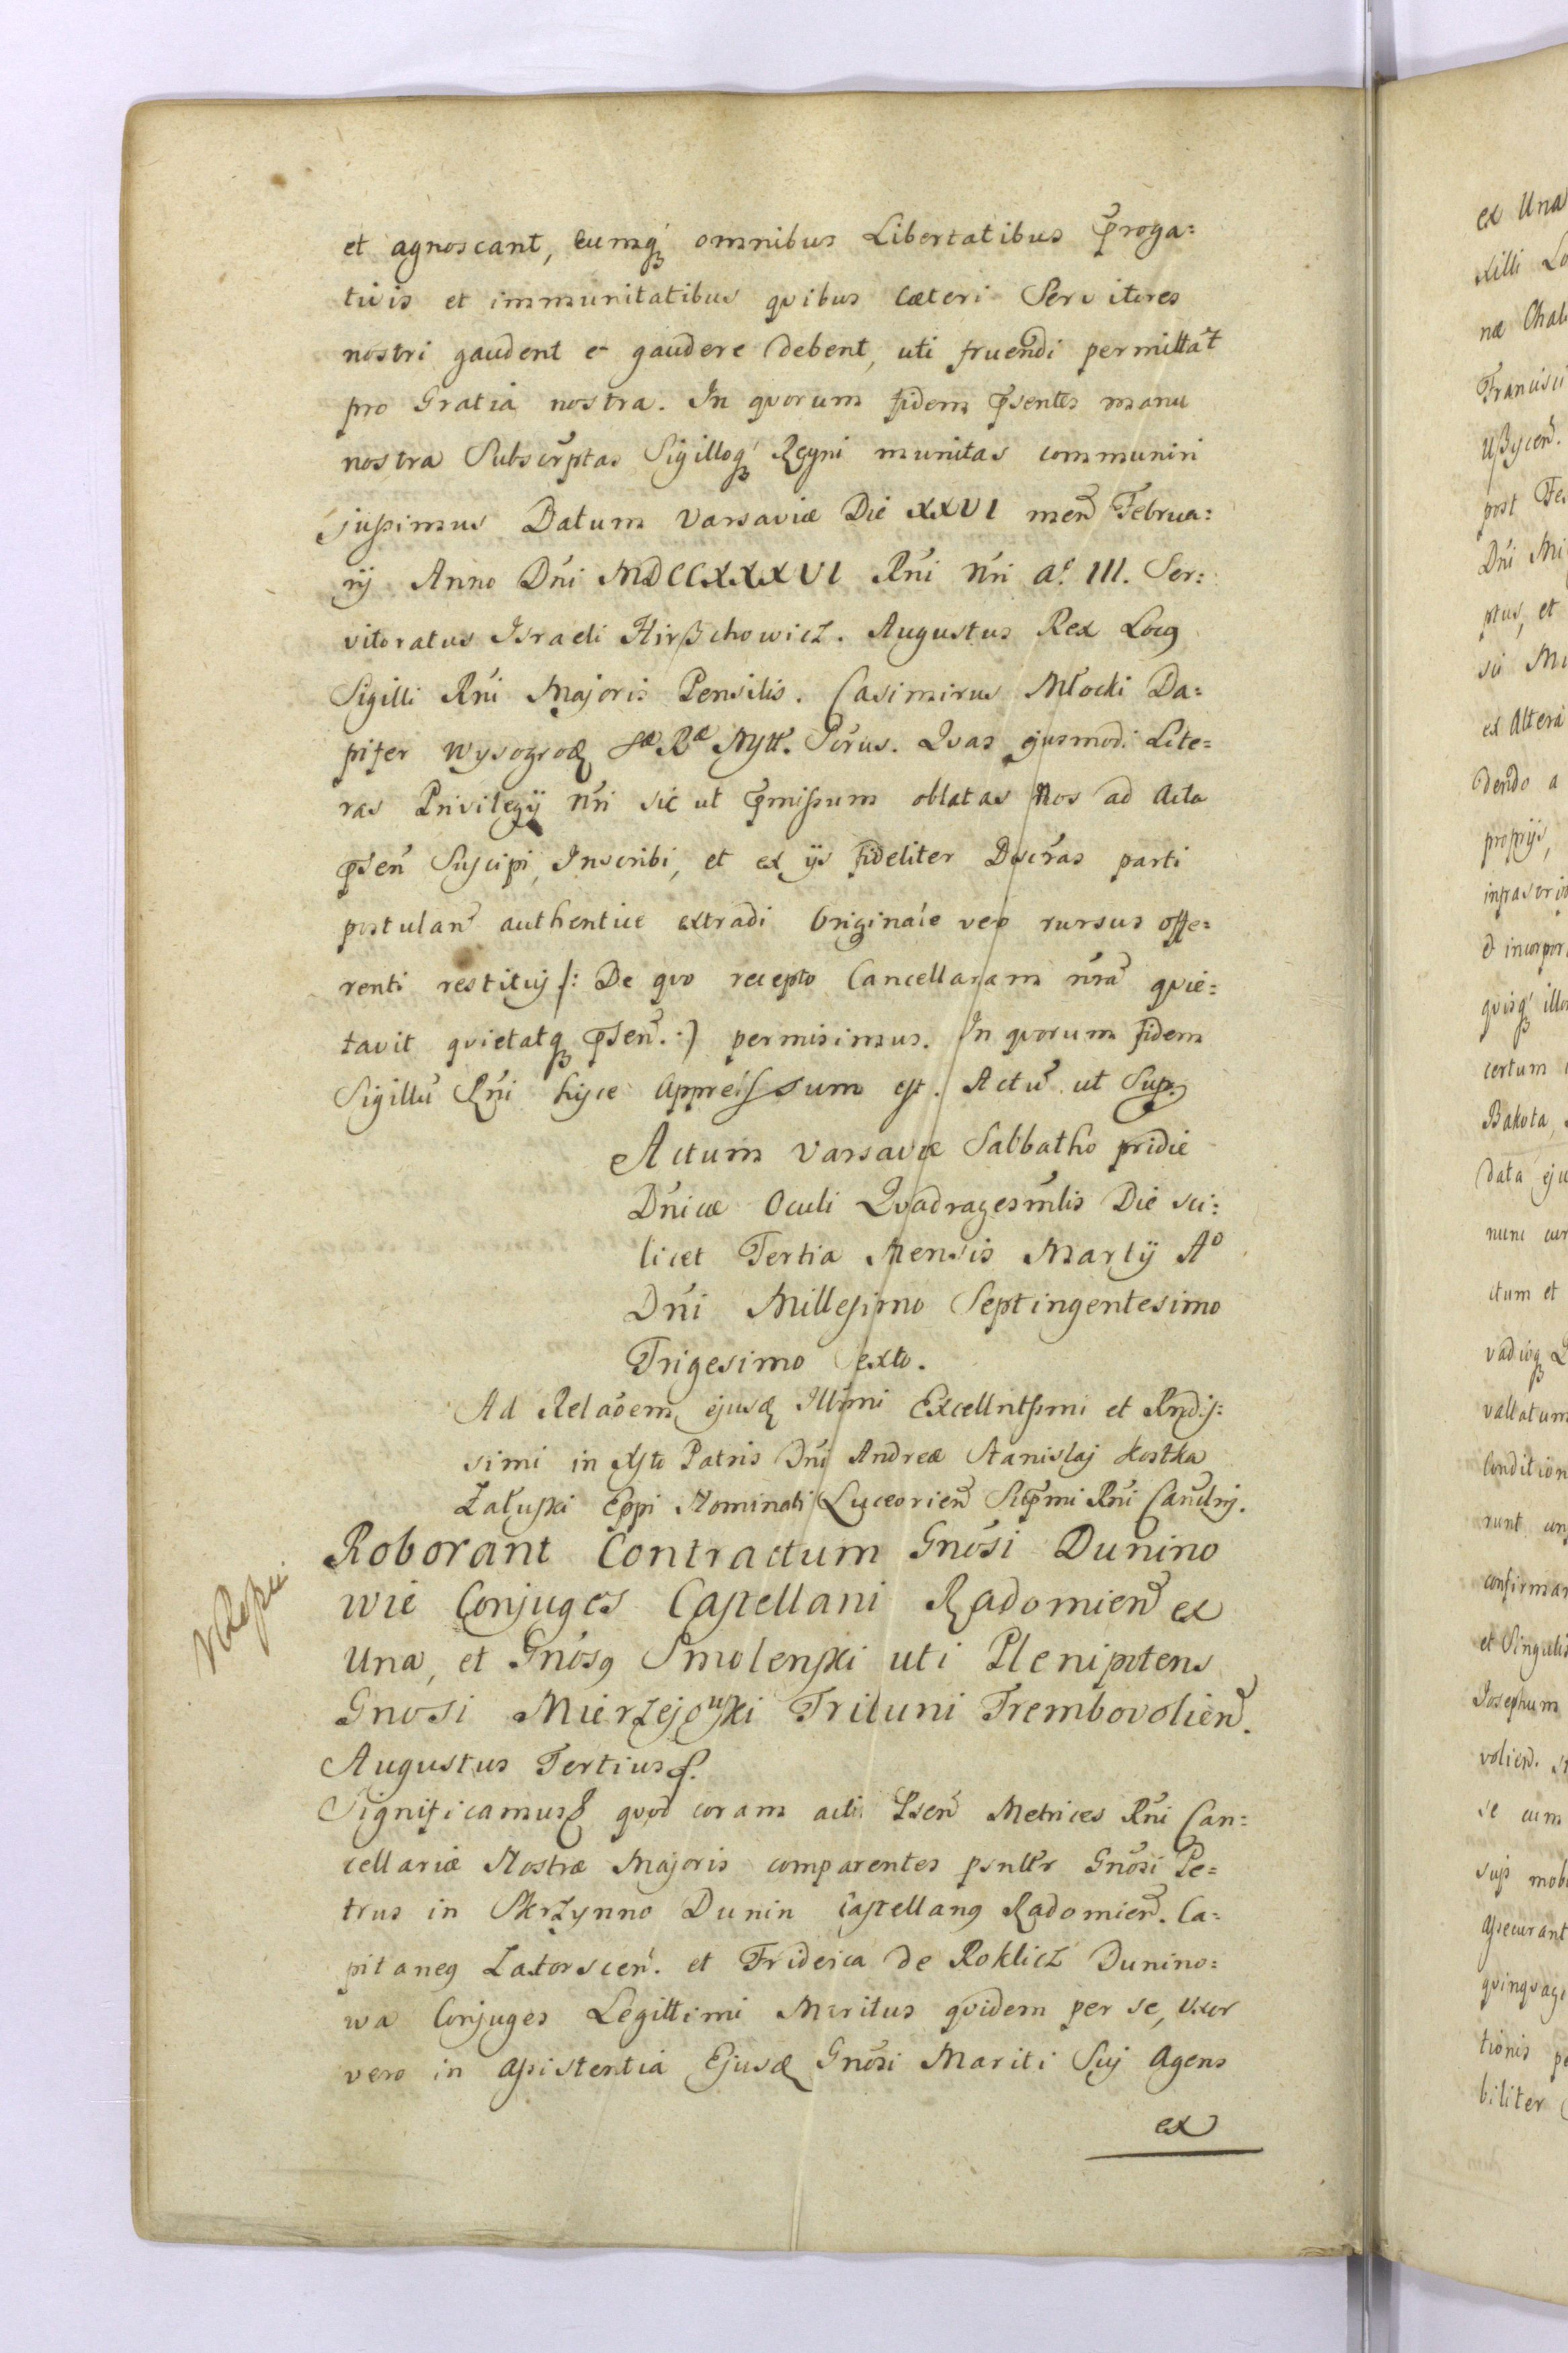 et agnoscant, eumq́ omnibus Libertatibus p̃roga=
tivis et immunitatibus qvibus cæteri Servitores
nostri gaudent et gaudere debent, uti fruendi permittãt
pro Gratia nostra. In qvorum fidem p̃sentes manu
nostra Subscrp̃tas Sigilloq́ Regni munitas communiri
jussimus Datum Varsaviæ Die XXVI meñ Februa:
rij Anno Dńi MDCCXXXVI Rńi Nńi aº III. Ser:
vitoratus Israeli Hirszchowicz. Augustus Rex Locg
Sigilli Rńi Majoris Pensilis. Casimirus Młocki Da:
pifer Wysogrod Sæ Ræ Mttis Sc̃rus. Qvas ejusmodi Lite=
ras Privilegij Nńi sic ut p̃missum oblatas Nos ad Acta
p̃señ Suscipi, Inscribi, et ex ijs fideliter Desc̃tas parti
postulañ authentice extradi Originale vero rursus offe=
renti restituj /: De qvo recepto Cancellariam ñrã qvie=
tavit qvietatq p̃señ. :/ permisimus. In qvorum fidem
Sigillũ Rńi hisce appressum est. Actũ ut Sup.
Actum Varsaviæ Sabbatho pridie
Dńicæ Oculi Qvadragesim̃lis Die sci:
licet Tertia Mensis Martij Aº
Dńi Millesimo Septingentesimo
Trigesimo Sexto.
Ad Relaõem ejusd Illm̃i Excellñtssmi et Rndis:
simi in Xsto Patris Dńi Andreæ Stanislaj Kostka
Załuski Ep̃pi Nominati Luceorieñ Sup̃mi Rńi Canclrij.
Roborant Contractum Gnõsi Dunino
wie Conjuges Castellani Radomieñ ex
Una, et Gnõsg Smolenski uti Plenipotens
Gnosi Mierzejewski Tribuni Trembovolieñ.
Augustus Tertius &.
Significamus & qvod coram actis Pseñ Metrices Rńi Can:
cellariæ Nostræ Majoris comparentes psnltr̃ Gnõsi Pe=
trus in Skrzynno Dunin Castellang Radomieñ. Ca:
pitaneg Zatorsceñ. et Friderica de Roklicz Dunino:
wa Conjuges Legittimi Maritus qvidem per se, Uxor
vero in assistentia Ejusd Gnõsi Mariti Suj Agens
ex
ex Una
xilli Lo
næ Chal
Francisci
post Fe
Dńi Mi
ptus, et
ex Altera
dendo a
proprijs,
infrascri
et incorpor
qvisq́ illo
certum
Bakota,
data eju
nunc cur
ctum et
vadioq
vallatum
Condition
runt
confirmar
et Singulis
Josephum
volieñ.
se cum
suis mob
assecurant
qvinqvage
tionis pe
biliter